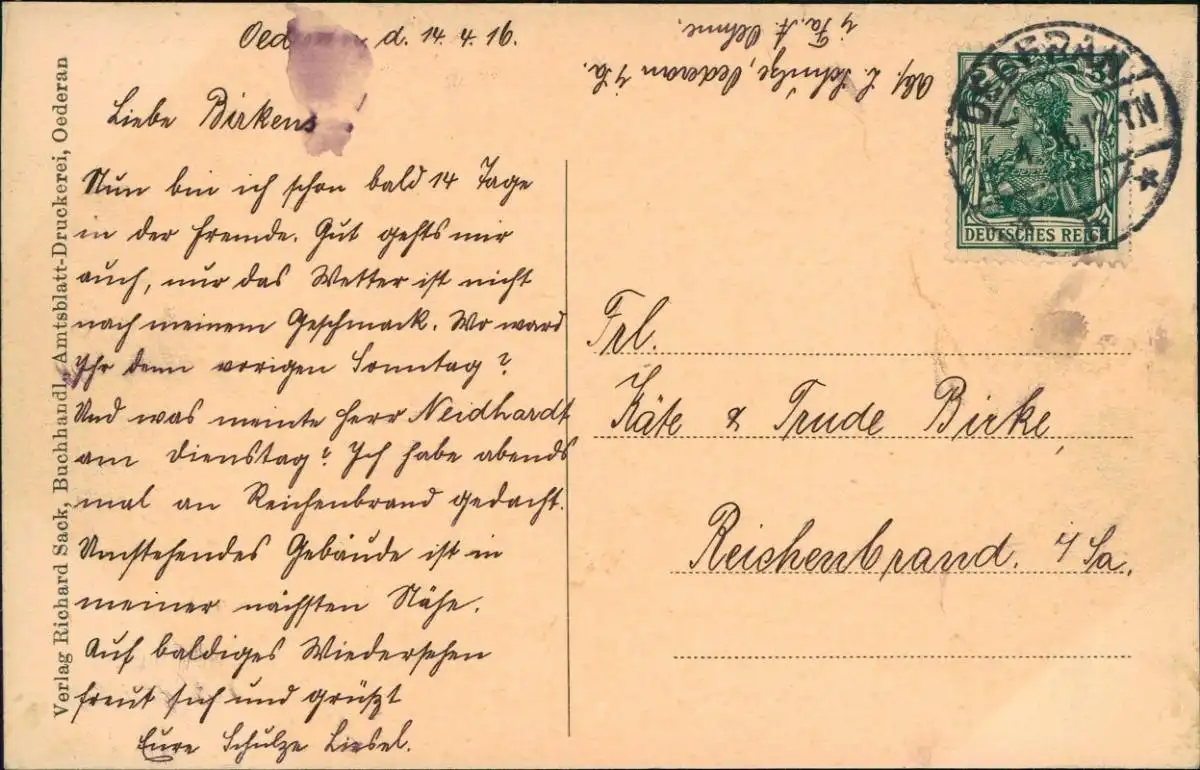 Oederan d. 14. 4. 16.
Liebe Birkens
Nun bin ich schon bald 14 Tage
in der Fremde. Gut gehts mir
auch, nur das Wetter ist nicht
nach meinem Geschmack. Wo ward
Ihr denn vorigen Sonntag?
Und was meinte Herr Neidhardt
am Dienstag? Ich habe abends
mal an Reichenbrand gedacht.
Umstehendes Gebäude ist in
meiner nächsten Nähe.
Auf baldiges Wiedersehen
freut sich und grüßt
Eure Schulze Liesel.
Abs. L. Schulze, Oederan i/Sa.
i/Fa. A. Oehme.
OEDERAN
DEUTSCHES REICH
Frl.
Käte & Trude Birke,
Reichenbrand. i/Sa.
Verlag Richard Sack, Buchhandl., Amtsblatt-Druckerei, Oederan